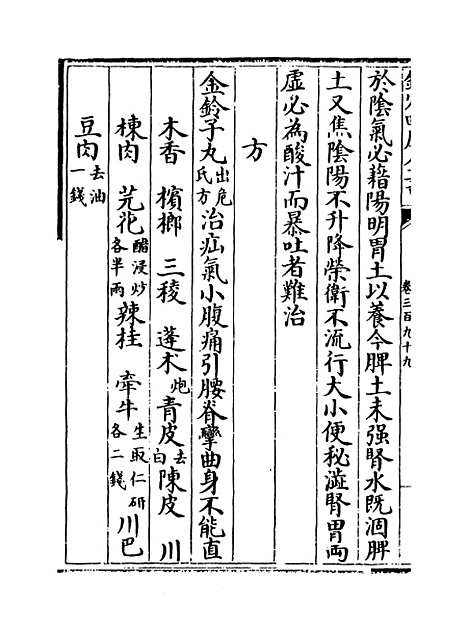 卷三百九十九
於陰氣必藉陽明胃土以養今脾土未强腎水既涸脾
土又焦陰陽不升降榮衛不流行大小便秘澁腎胃両
虛必為酸汁而暴吐者難治
方
金鈴子丸出危氏方治疝氣小腹痛引腰脊攣曲身不能直
木香 檳榔 三稜 蓬术炮青皮去白陳皮 川
楝肉 芫花醋浸炒各半兩辣桂 牽牛生取仁研各二錢川巴
豆肉去油一錢